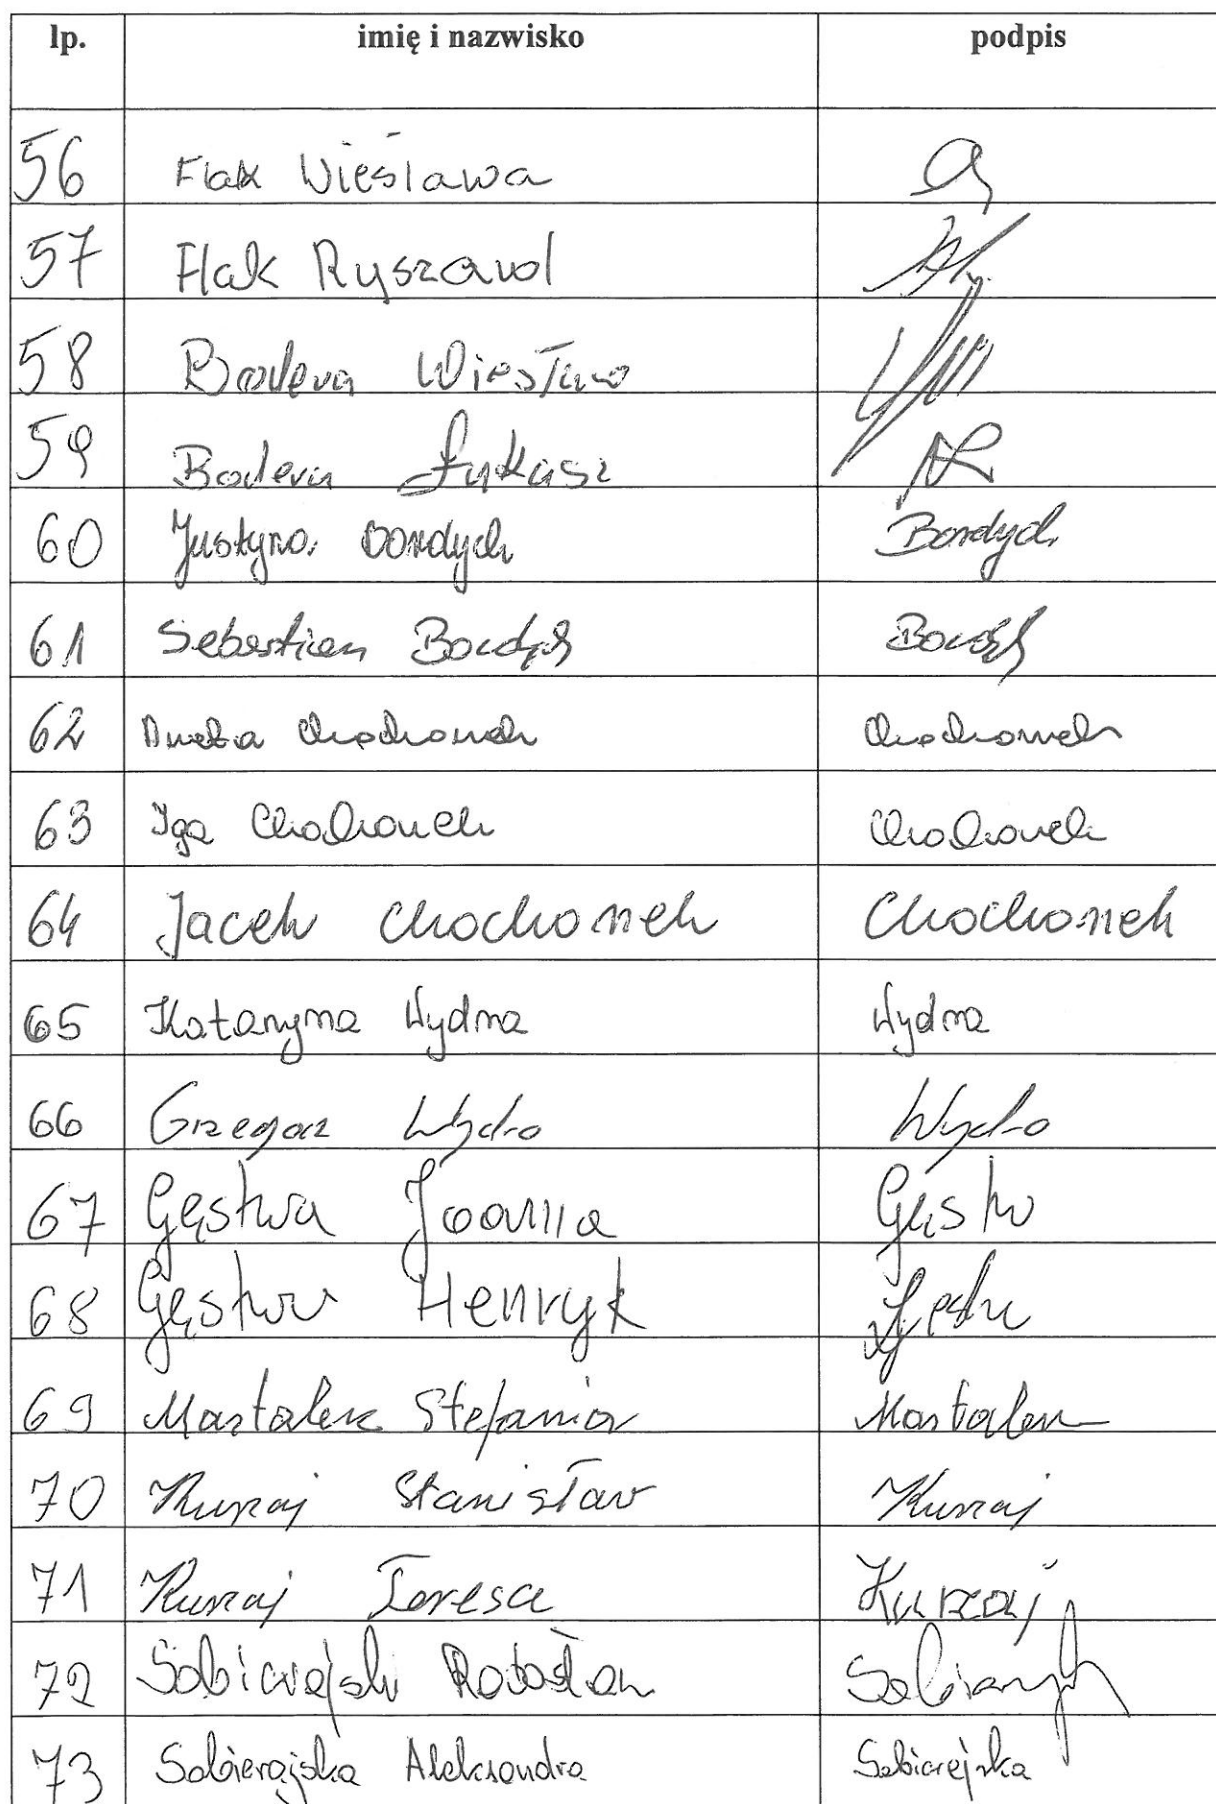 lp. imię i nazwisko podpis
56 Flak Wiesława
57 Flak Ryszard
58 Badera Wiesław
59 Badera Łukasz
60 Justyna Bordych Bordych
61 Sebastian Bordych Bordych
62 Aneta Chochorek Chochorek
63 Iga Chochonek Chochonek
64 Jacek Chochonek Chochonek
65 Katarzyna Wydma Wydma
66 Grzegorz Wydro Wydro
67 Gęstwa Joanna Gęstw
68 Gęstwa Henryk
69 Mastalerz Stefania Mastalerz
70 Kurzaj Stanisław Kurzaj
71 Kurzaj Teresa Kurzaj
72 Sobierajski Radosław
73 Sobierajska Aleksandra Sobierajska